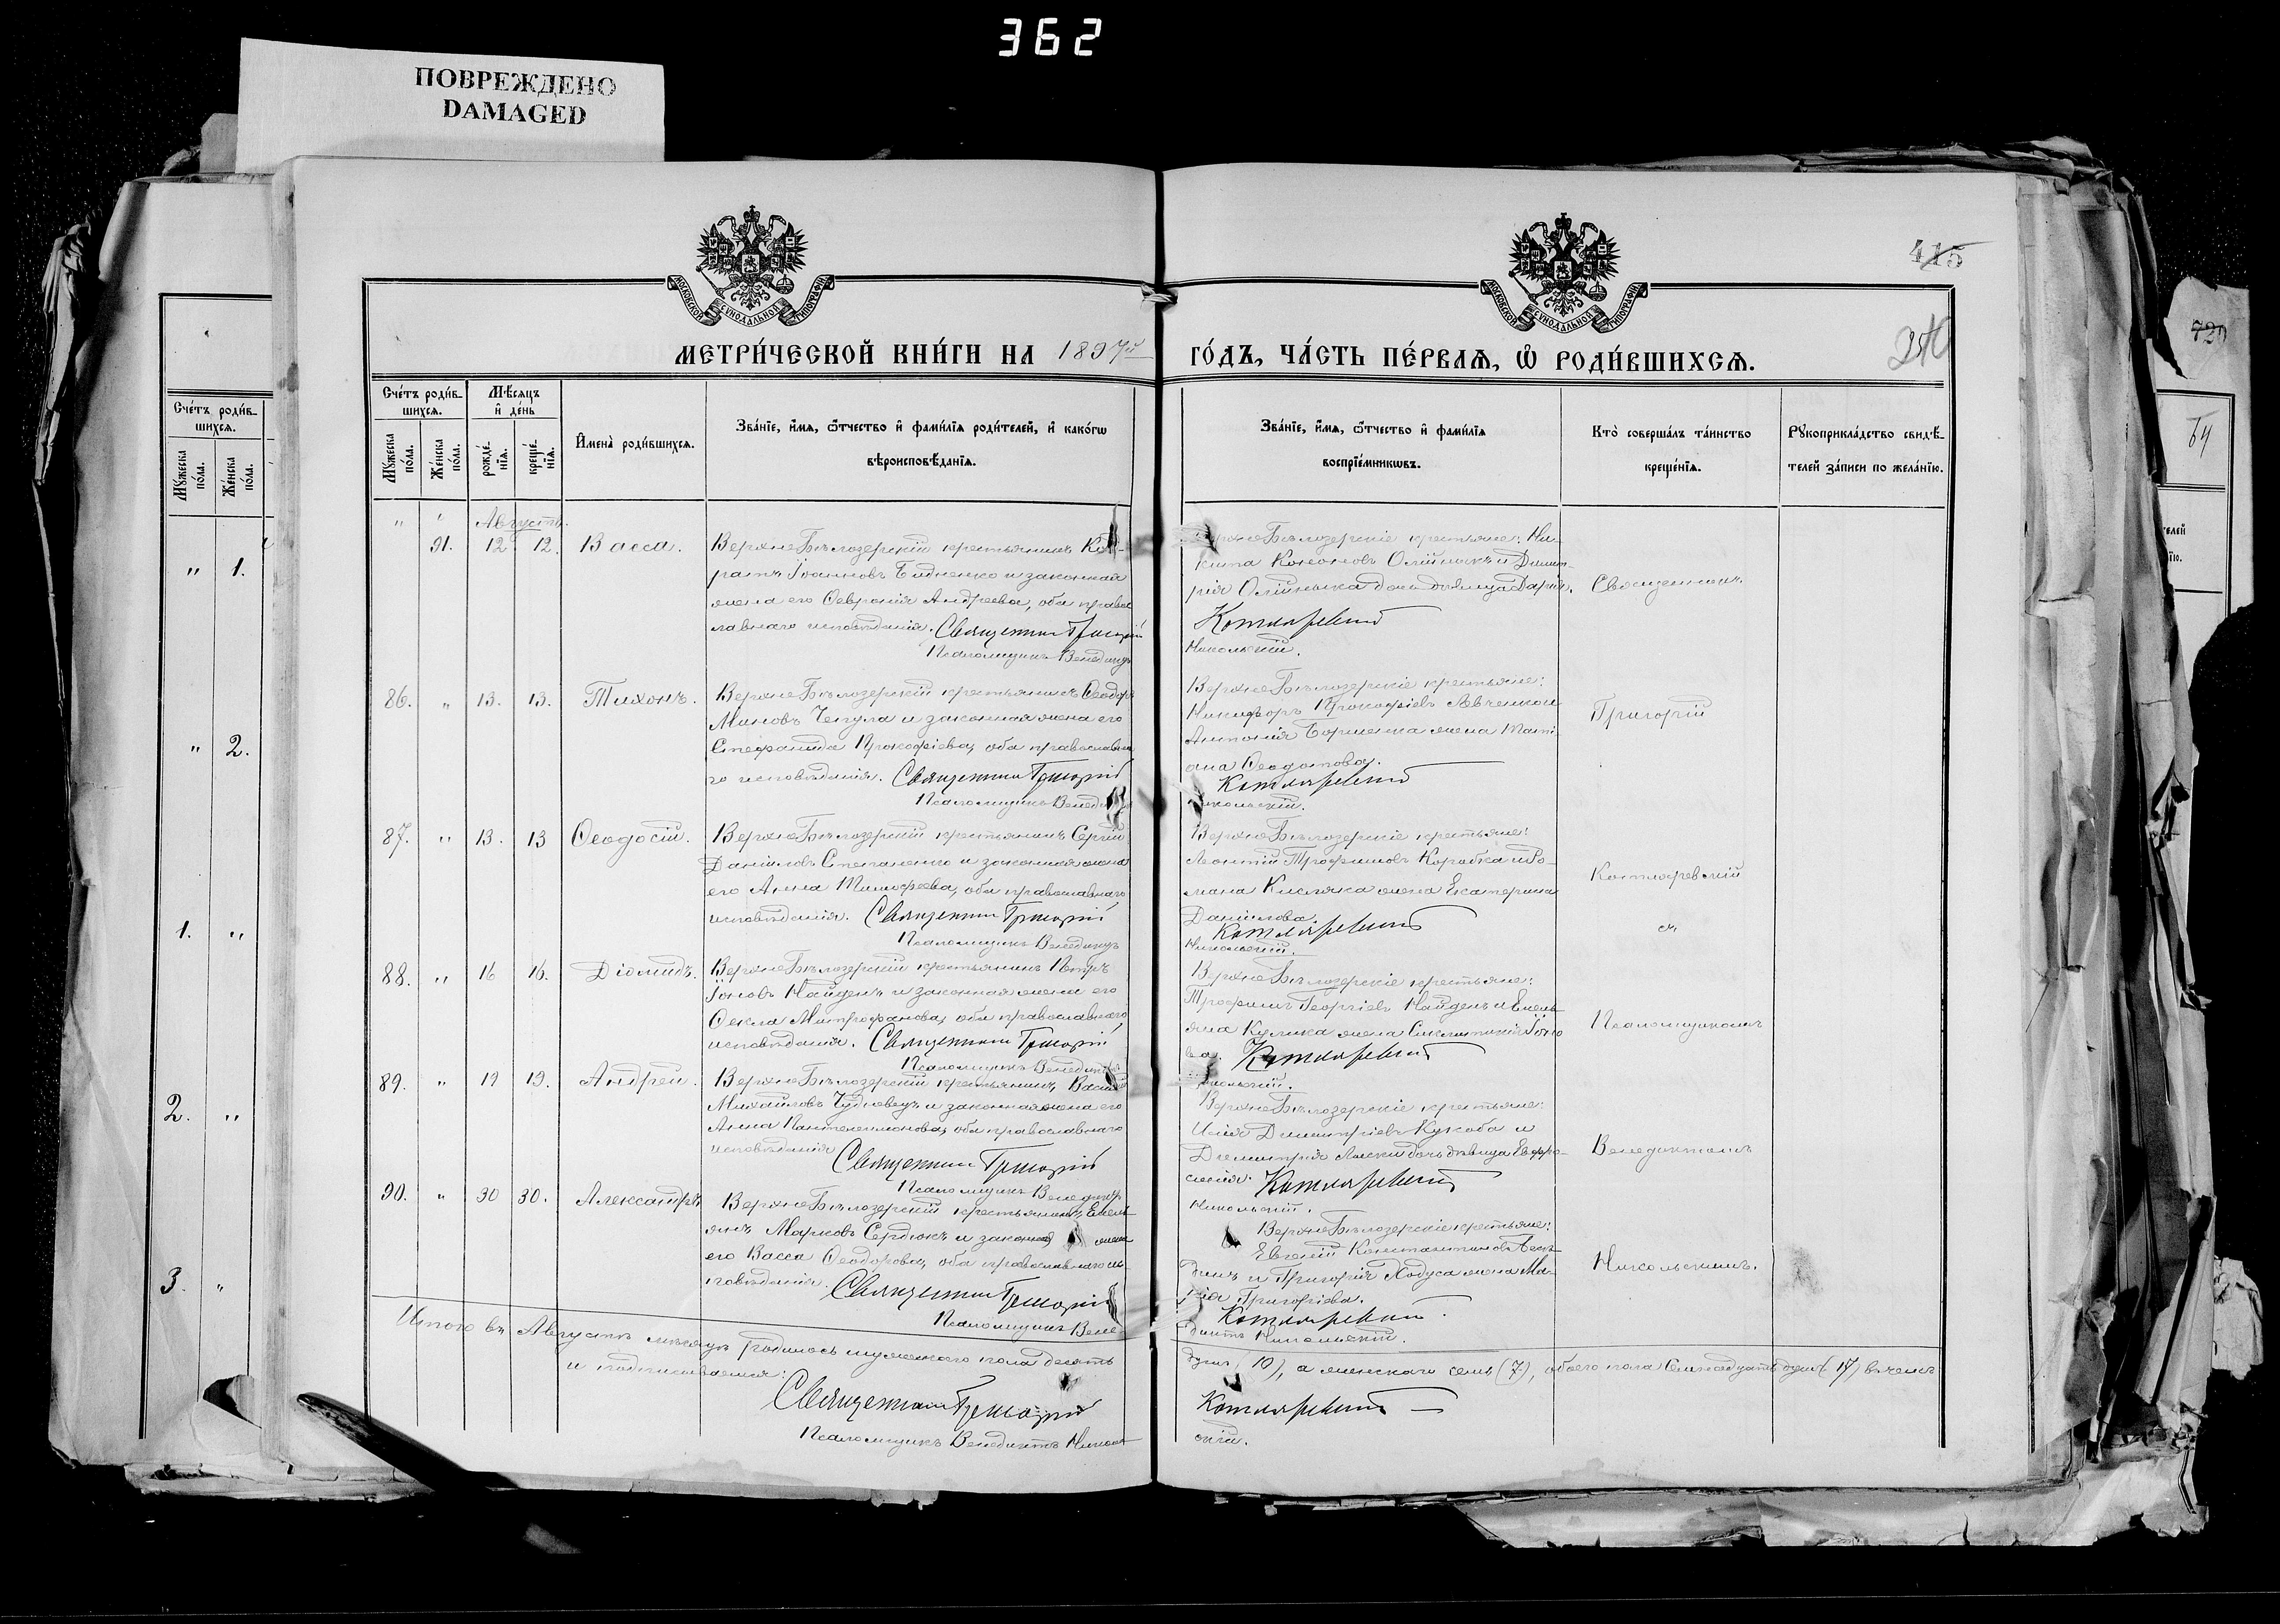 362
ПОВРЕЖДЕНО
DAMAGED
415
729
МОСКОВСКОЙ СУНОДАЛЬНОЙ ТИПОГРАФІИ
МОСКОВСКОЙ СУНОДАЛЬНОЙ ТИПОГРАФІИ
МЕТРИ́ЧЕСКОЙ КНИ́ГИ НА 1897й ГО́ДЪ, ЧА́СТЬ ПЕ́РВАѦ, Ѡ РОДИ́ВШИХСѦ.
Сче́тъ роди́в-
шихсѧ.
Мꙋ́жеска по́ла.
Же́нска по́ла.
Мѣ́сѧцъ и҆ де́нь
рожде́нїѧ.
креще́нїѧ.
И҆мена̀ роди́вшихсѧ.
Зва́нїе, и҆́мѧ, ѻ҆́тчество и҆ фами́лїѧ роди́телей, и҆ како́гѡ
вѣроисповѣ́данїѧ.
Зва́нїе, и҆́мѧ, ѻ҆́тчество и҆ фами́лїѧ
воспрїе́мникѡвъ.
Кто̀ соверша́лъ та́инство
креще́нїѧ.
Рꙋкоприкла́дство свидѣ́-
телей за́писи по жела́нїю.
Сче́тъ роди́в-
шихсѧ.
Мꙋ́жеска по́ла.
Же́нска по́ла.
" 1.
" 2.
1. "
2. "
3. "
Августъ.
91. 12. 12. Васса.
Верхнебѣлозерскій крестьянинъ
Іоанновъ и законная
жена его Февронія Андреева, оба правос
лавнаго исповѣданія. Священникъ Григорій
Псаломщикъ Венедиктъ
Верхнебѣлозерскіе крестьяне: Ни-
кита Кононовъ Олійникъ и Димит-
рія Олійныка дочь дѣвица Дарія.
Котляревскій
Никольскій.
Священникъ
86. " 13. 13. Тихонъ.
Верхнебѣлозерскій крестьянинъ Ѳеодоръ
Миновъ Чепула и законная жена его
Стефанида Прокофіева, оба православна
го исповѣданія. Священникъ Григорій
Псаломщикъ Венедиктъ
Верхнебѣлозерскіе крестьяне:
Никифоръ Прокофіевъ Левченко и
Антонія жена Тати
ана Ѳеодотова.
Котляревскій
Никольскій.
Григорій
87. " 13. 13 Ѳеодосій.
Верхнебѣлозерскій крестьянинъ Сергій
Даніиловъ Степаненко и законная жена
его Анна Тимофеева, оба православнаго
исповѣданія. Священникъ Григорій
Псаломщикъ Венедиктъ
Верхнебѣлозерскіе крестьяне:
Леонтій Трофимовъ Коробка и Ро-
мана Кисляка жена Екатерина
Даніилова.
Котляревскій
Никольскій.
Котляревскій
съ
88. " 16 16. Діомидъ.
Верхнебѣлозерскій крестьянинъ Петръ
Іоновъ Найденъ и законная жена его
Ѳекла Митрофанова, оба православнаго
исповѣданія. Священникъ Григорій
Псаломщикъ Венедиктъ
Верхнебѣлозерскіе крестьяне:
Трофимъ Георгіевъ Найденъ и Емель
яна Кулика жена
ва. Котляревскій
Никольскій.
Псаломщикомъ
89. " 19 19. Андрей.
Верхнебѣлозерскій крестьянинъ Василій
Михайловъ Чудновецъ и законная жена его
Анна Пантелеимонова, оба православнаго
исповѣданія Священникъ Григорій
Псаломщикъ Венедиктъ
Верхнебѣлозерскіе крестьяне:
Илія Димитріевъ Кукоба и
Димитрія дочь дѣвица Евфро-
синія. Котляревскій
Никольскій.
Венедиктомъ
90. " 30 30. Александръ
Верхнебѣлозерскій крестьянинъ Емель-
янъ Марковъ Сердюкъ и законная жена
его Васса Ѳеодорова, оба православнаго ис-
повѣданія. Священникъ Григорій
Псаломщикъ Вене
Верхнебѣлозерскіе крестьяне:
Евгеній Константиновъ
и Григорія Ходуса жена Ма-
рія Григоріева.
Котляревскій.
диктъ Никольскій.
Никольскимъ.
Итого въ Августѣ мѣсяцѣ родилось мужескаго пола десять душъ (10), а женскаго семь (7), обоего пола семнадцать душъ (17) въ чемъ
и подписываемся:
Священникъ Григорій Котляревскій
Псаломщикъ Венедиктъ Николь
скій.